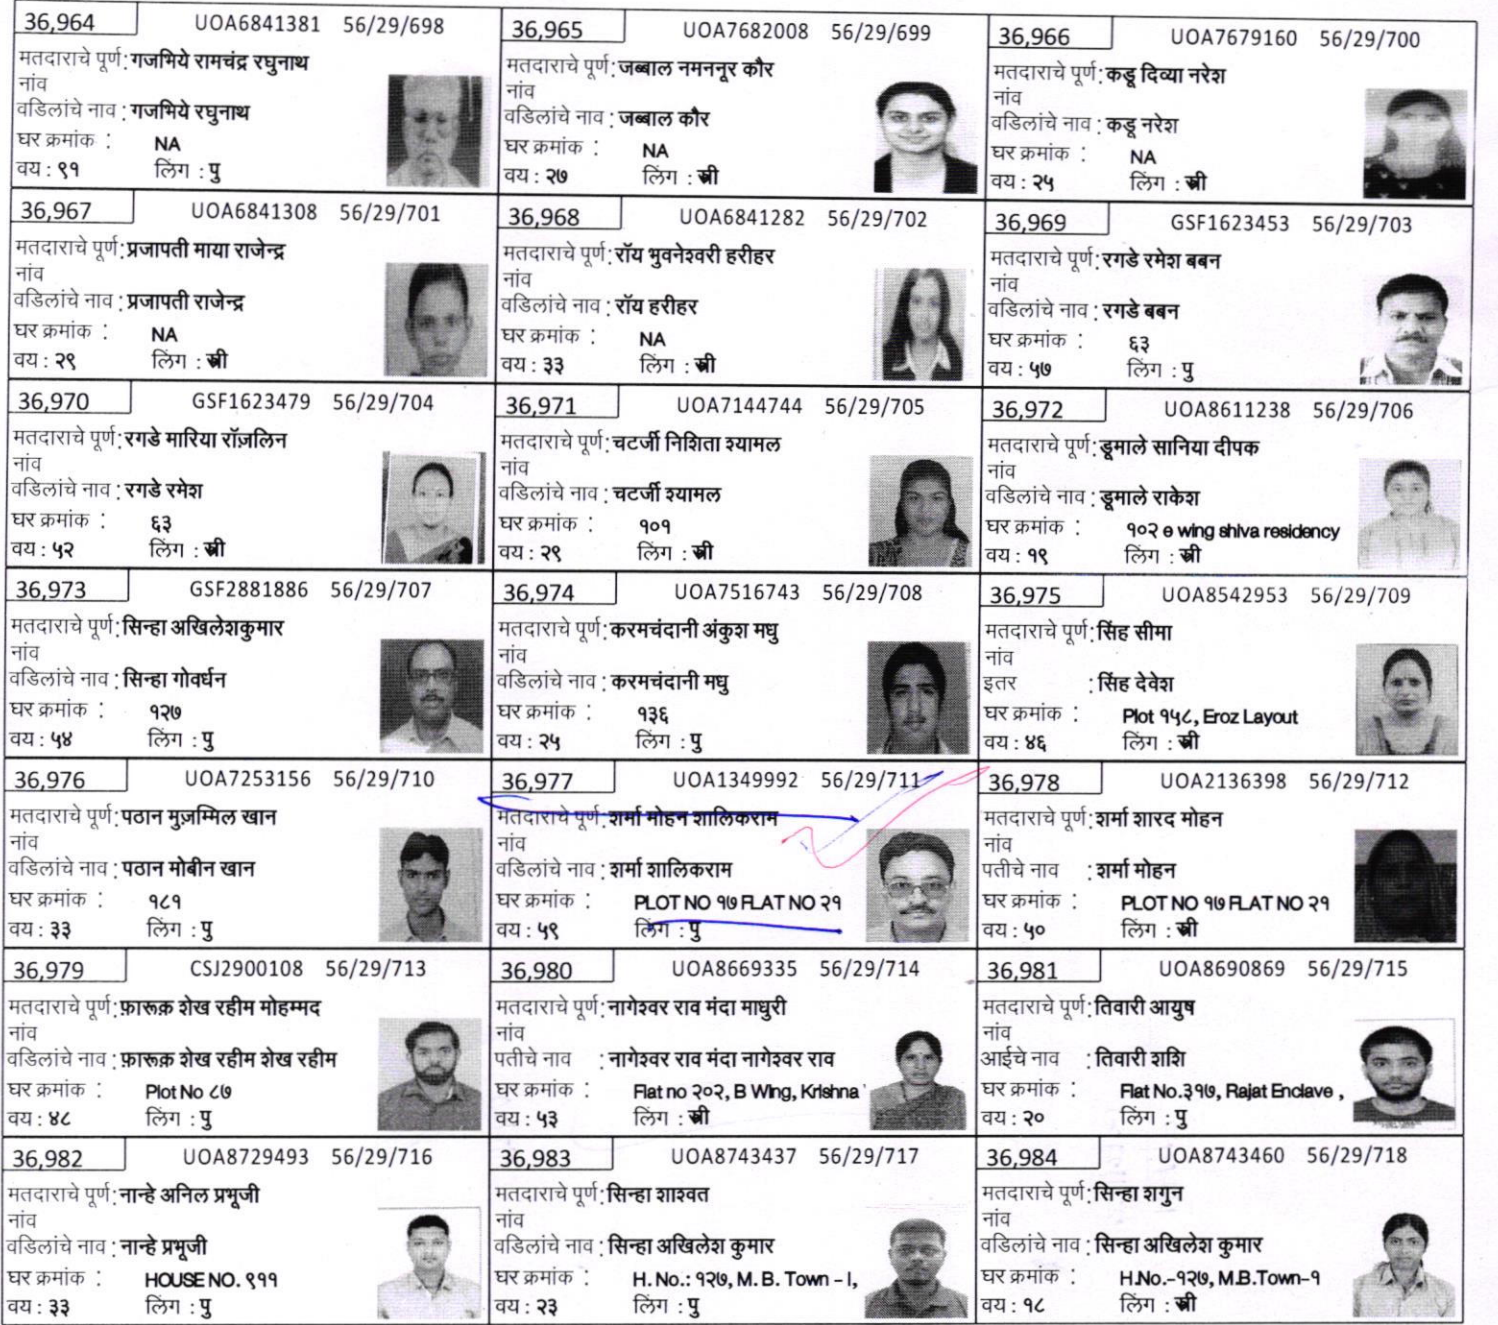 36,964 UOA6841381 56/29/698
मतदाराचे पूर्ण: गजभिये रामचंद्र रघुनाथ
नांव
वडिलांचे नाव : गजभिये रघुनाथ
घर क्रमांक : NA
वय : ९१ लिंग : पु
36,965 UOA7682008 56/29/699
मतदाराचे पूर्ण: जब्बाल नमननूर कौर
नांव
वडिलांचे नाव : जब्बाल कौर
घर क्रमांक : NA
वय : २७ लिंग : स्त्री
36,966 UOA7679160 56/29/700
मतदाराचे पूर्ण: कडू दिव्या नरेश
नांव
वडिलांचे नाव : कडू नरेश
घर क्रमांक : NA
वय : २५ लिंग : स्त्री
36,967 UOA6841308 56/29/701
मतदाराचे पूर्ण: प्रजापती माया राजेन्द्र
नांव
वडिलांचे नाव : प्रजापती राजेन्द्र
घर क्रमांक : NA
वय : २९ लिंग : स्त्री
36,968 UOA6841282 56/29/702
मतदाराचे पूर्ण: रॉय भुवनेश्वरी हरीहर
नांव
वडिलांचे नाव : रॉय हरीहर
घर क्रमांक : NA
वय : ३३ लिंग : स्त्री
36,969 GSF1623453 56/29/703
मतदाराचे पूर्ण: रगडे रमेश बबन
नांव
वडिलांचे नाव : रगडे बबन
घर क्रमांक : ६३
वय : ५७ लिंग : पु
36,970 GSF1623479 56/29/704
मतदाराचे पूर्ण: रगडे मारिया रॉज़लिन
नांव
वडिलांचे नाव : रगडे रमेश
घर क्रमांक : ६३
वय : ५२ लिंग : स्त्री
36,971 UOA7144744 56/29/705
मतदाराचे पूर्ण: चटर्जी निशिता श्यामल
नांव
वडिलांचे नाव : चटर्जी श्यामल
घर क्रमांक : १०१
वय : २९ लिंग : स्त्री
36,972 UOA8611238 56/29/706
मतदाराचे पूर्ण: डूमाले सानिया दीपक
नांव
वडिलांचे नाव : डूमाले राकेश
घर क्रमांक : १०२ e wing shiva residency
वय : १९ लिंग : स्त्री
36,973 GSF2881886 56/29/707
मतदाराचे पूर्ण: सिन्हा अखिलेशकुमार
नांव
वडिलांचे नाव : सिन्हा गोवर्धन
घर क्रमांक : १२७
वय : ५४ लिंग : पु
36,974 UOA7516743 56/29/708
मतदाराचे पूर्ण: करमचंदानी अंकुश मधु
नांव
वडिलांचे नाव : करमचंदानी मधु
घर क्रमांक : १३६
वय : २५ लिंग : पु
36,975 UOA8542953 56/29/709
मतदाराचे पूर्ण: सिंह सीमा
नांव
इतर : सिंह देवेश
घर क्रमांक : Plot १५८, Eroz Layout
वय : ४६ लिंग : स्त्री
36,976 UOA7253156 56/29/710
मतदाराचे पूर्ण: पठान मुज़म्मिल खान
नांव
वडिलांचे नाव : पठान मोबीन खान
घर क्रमांक : १८१
वय : ३३ लिंग : पु
36,977 UOA1349992 56/29/711
मतदाराचे पूर्ण: शर्मा मोहन शालिकराम
नांव
वडिलांचे नाव : शर्मा शालिकराम
घर क्रमांक : PLOT NO १७ FLAT NO २१
वय : ५९ लिंग : पु
36,978 UOA2136398 56/29/712
मतदाराचे पूर्ण: शर्मा शारद मोहन
नांव
पतीचे नाव : शर्मा मोहन
घर क्रमांक : PLOT NO १७ FLAT NO २१
वय : ५० लिंग : स्त्री
36,979 CSJ2900108 56/29/713
मतदाराचे पूर्ण: फ़ारूक़ शेख रहीम मोहम्मद
नांव
वडिलांचे नाव : फ़ारूक़ शेख रहीम शेख रहीम
घर क्रमांक : Plot No ८७
वय : ४८ लिंग : पु
36,980 UOA8669335 56/29/714
मतदाराचे पूर्ण: नागेश्वर राव मंदा माधुरी
नांव
पतीचे नाव : नागेश्वर राव मंदा नागेश्वर राव
घर क्रमांक : Flat no २०२, B Wing, Krishna
वय : ५३ लिंग : स्त्री
36,981 UOA8690869 56/29/715
मतदाराचे पूर्ण: तिवारी आयुष
नांव
आईचे नाव : तिवारी शशि
घर क्रमांक : Flat No.३१७, Rajat Enclave ,
वय : २० लिंग : पु
36,982 UOA8729493 56/29/716
मतदाराचे पूर्ण: नान्हे अनिल प्रभूजी
नांव
वडिलांचे नाव : नान्हे प्रभूजी
घर क्रमांक : HOUSE NO. ९११
वय : ३३ लिंग : पु
36,983 UOA8743437 56/29/717
मतदाराचे पूर्ण: सिन्हा शाश्वत
नांव
वडिलांचे नाव : सिन्हा अखिलेश कुमार
घर क्रमांक : H. No.: १२७, M. B. Town - I,
वय : २३ लिंग : पु
36,984 UOA8743460 56/29/718
मतदाराचे पूर्ण: सिन्हा शगुन
नांव
वडिलांचे नाव : सिन्हा अखिलेश कुमार
घर क्रमांक : H.No.-१२७, M.B.Town-१
वय : १८ लिंग : स्त्री